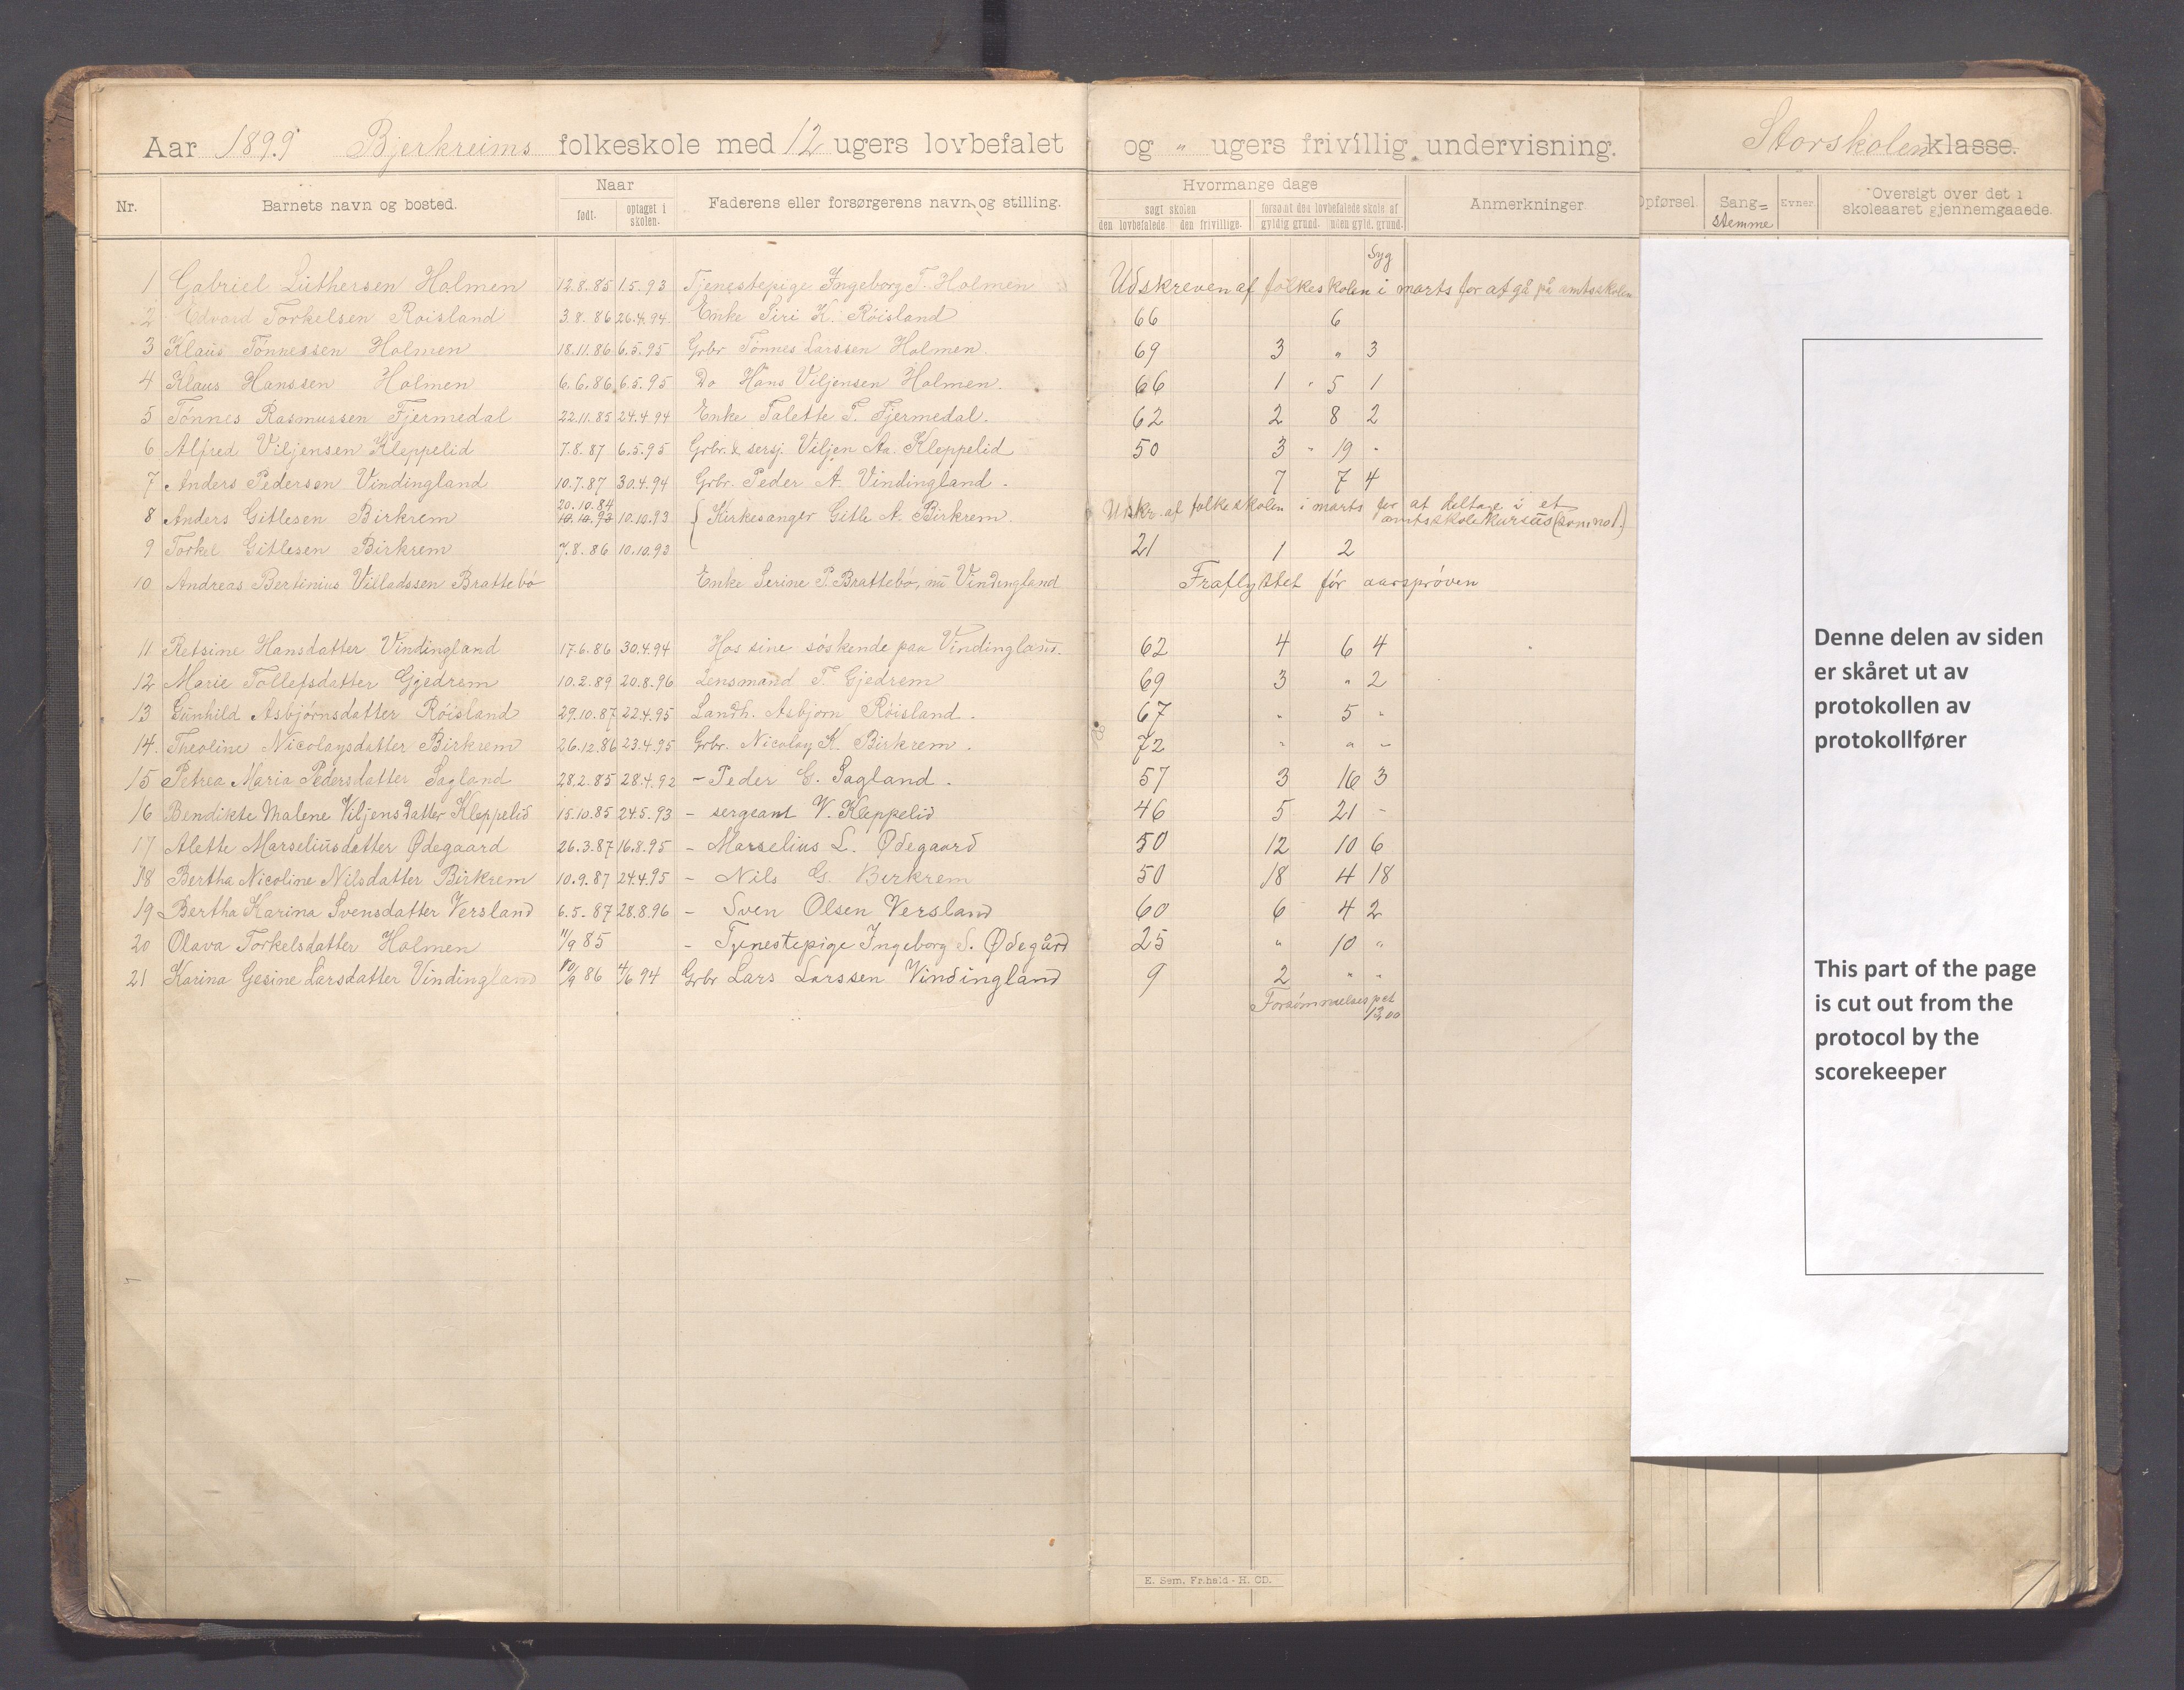 Aar 1899 Bjerkreims folkeskole med 12 ugers lovbefalet og " ugers frivillig undervisning. Storskolen klasse.
Nr. Barnets navn og bosted. Naar Faderens eller forsørgerens navn og stilling. Hvormange dage Anmerkninger Opførsel. Sang= Evner Oversigt over det i
født. optaget i søgt skolen forsømt den lovbefalede skole af stemme skoleaaret gjennemgaaede.
skolen. den lovbefalede den frivillige. gyldig grund. uden gyld. grund.
Syg
1 Gabriel Luthersen Holmen 12.8.85 1.5.93 Tjenestepige Ingeborg T. Holmen Udskreven af folkeskolen i marts for at gå på amtsskolen
2 Edvard Torkelsen Röisland 3.8.86 26.4.94 Enke Siri K. Röisland 66 6
3 Klaus Tönnessen Holmen 18.11.86 6.5.95 Grbr Tönnes Larssen Holmen. 69 3 " 3
4 Klaus Hanssen Holmen 6.6.86 6.5.95 Do Hans Viljensen Holmen. 66 1 5 1
5 Tönnes Rasmussen Fjermedal 22.11.85 24.4.94 Enke Talette T. Fjermedal. 62 2 8 2
6 Alfred Viljensen Kleppelid 7.8.87 6.5.95 Grbr. & sersj. Viljen Aa. Kleppelid 50 3 19 "
7 Anders Pedersen Vindingland 10.7.87 30.4.94 Grbr. Peder A. Vindingland. 7 7 4
20.10.84
8 Anders Gitlesen Birkrem 10.10.93 10.10.93 { Kirkesanger Gitle A. Birkrem. Udskr. af folkeskolen i marts for at deltage i et
amtsskolekursus (som no 1.)
9 Torkel Gitlesen Birkrem 7.8.86 10.10.93 21 1 2
10 Andreas Bertinius Villadssen Brattebö Enke Serine P. Brattebö, nu Vindingland Fraflyttet för aarspröven
11 Retsine Hansdatter Vindingland 17.6.86 30.4.94 Hos sine söskende paa Vindingland. 62 4 6 4
12 Marie Tollefsdatter Gjedrem 10.2.89 20.8.96 Lensmand T. Gjedrem 69 3 " 2
13 Gunhild Asbjörnsdatter Röisland 29.10.87 22.4.95 Landh. Asbjörn Röisland. 67 " 5 "
14. Theoline Nicolaysdatter Birkrem 26.12.86 23.4.95 Grbr. Nicolay K. Birkrem. 72 " " "
15 Petrea Maria Pedersdatter Sagland 28.2.85 28.4.92 - Peder G. Sagland. 57 3 16 3
16 Bendikte Malene Viljensdatter Kleppelid 15.10.85 24.5.93 - sergeant V. Kleppelid 46 5 21 -
17 Alette Marseliusdatter Ødegaard 26.3.87 16.8.95 - Marselius L. Ødegaard 50 12 10 6
18 Bertha Nicoline Nilsdatter Birkrem 10.9.87 24.4.95 - Nils G. Birkrem 50 18 4 18
19 Bertha Karina Svensdatter Versland 6.5.87 28.8.96 - Sven Olsen Versland 60 6 4 2
20 Olava Torkelsdatter Holmen 11/9 85 - Tjenestepige Ingeborg S. Ødegård 25 " 10 "
21 Karina Gesine Larsdatter Vindingland 10/9 86 4/6 94 Grbr Lars Larssen Vindingland 9 2 " "
Forsömmelsespct
13,00
Denne delen av siden
er skåret ut av
protokollen av
protokollfører
This part of the page
is cut out from the
protocol by the
scorekeeper
E. Sem, Fr.hald - H. CD.